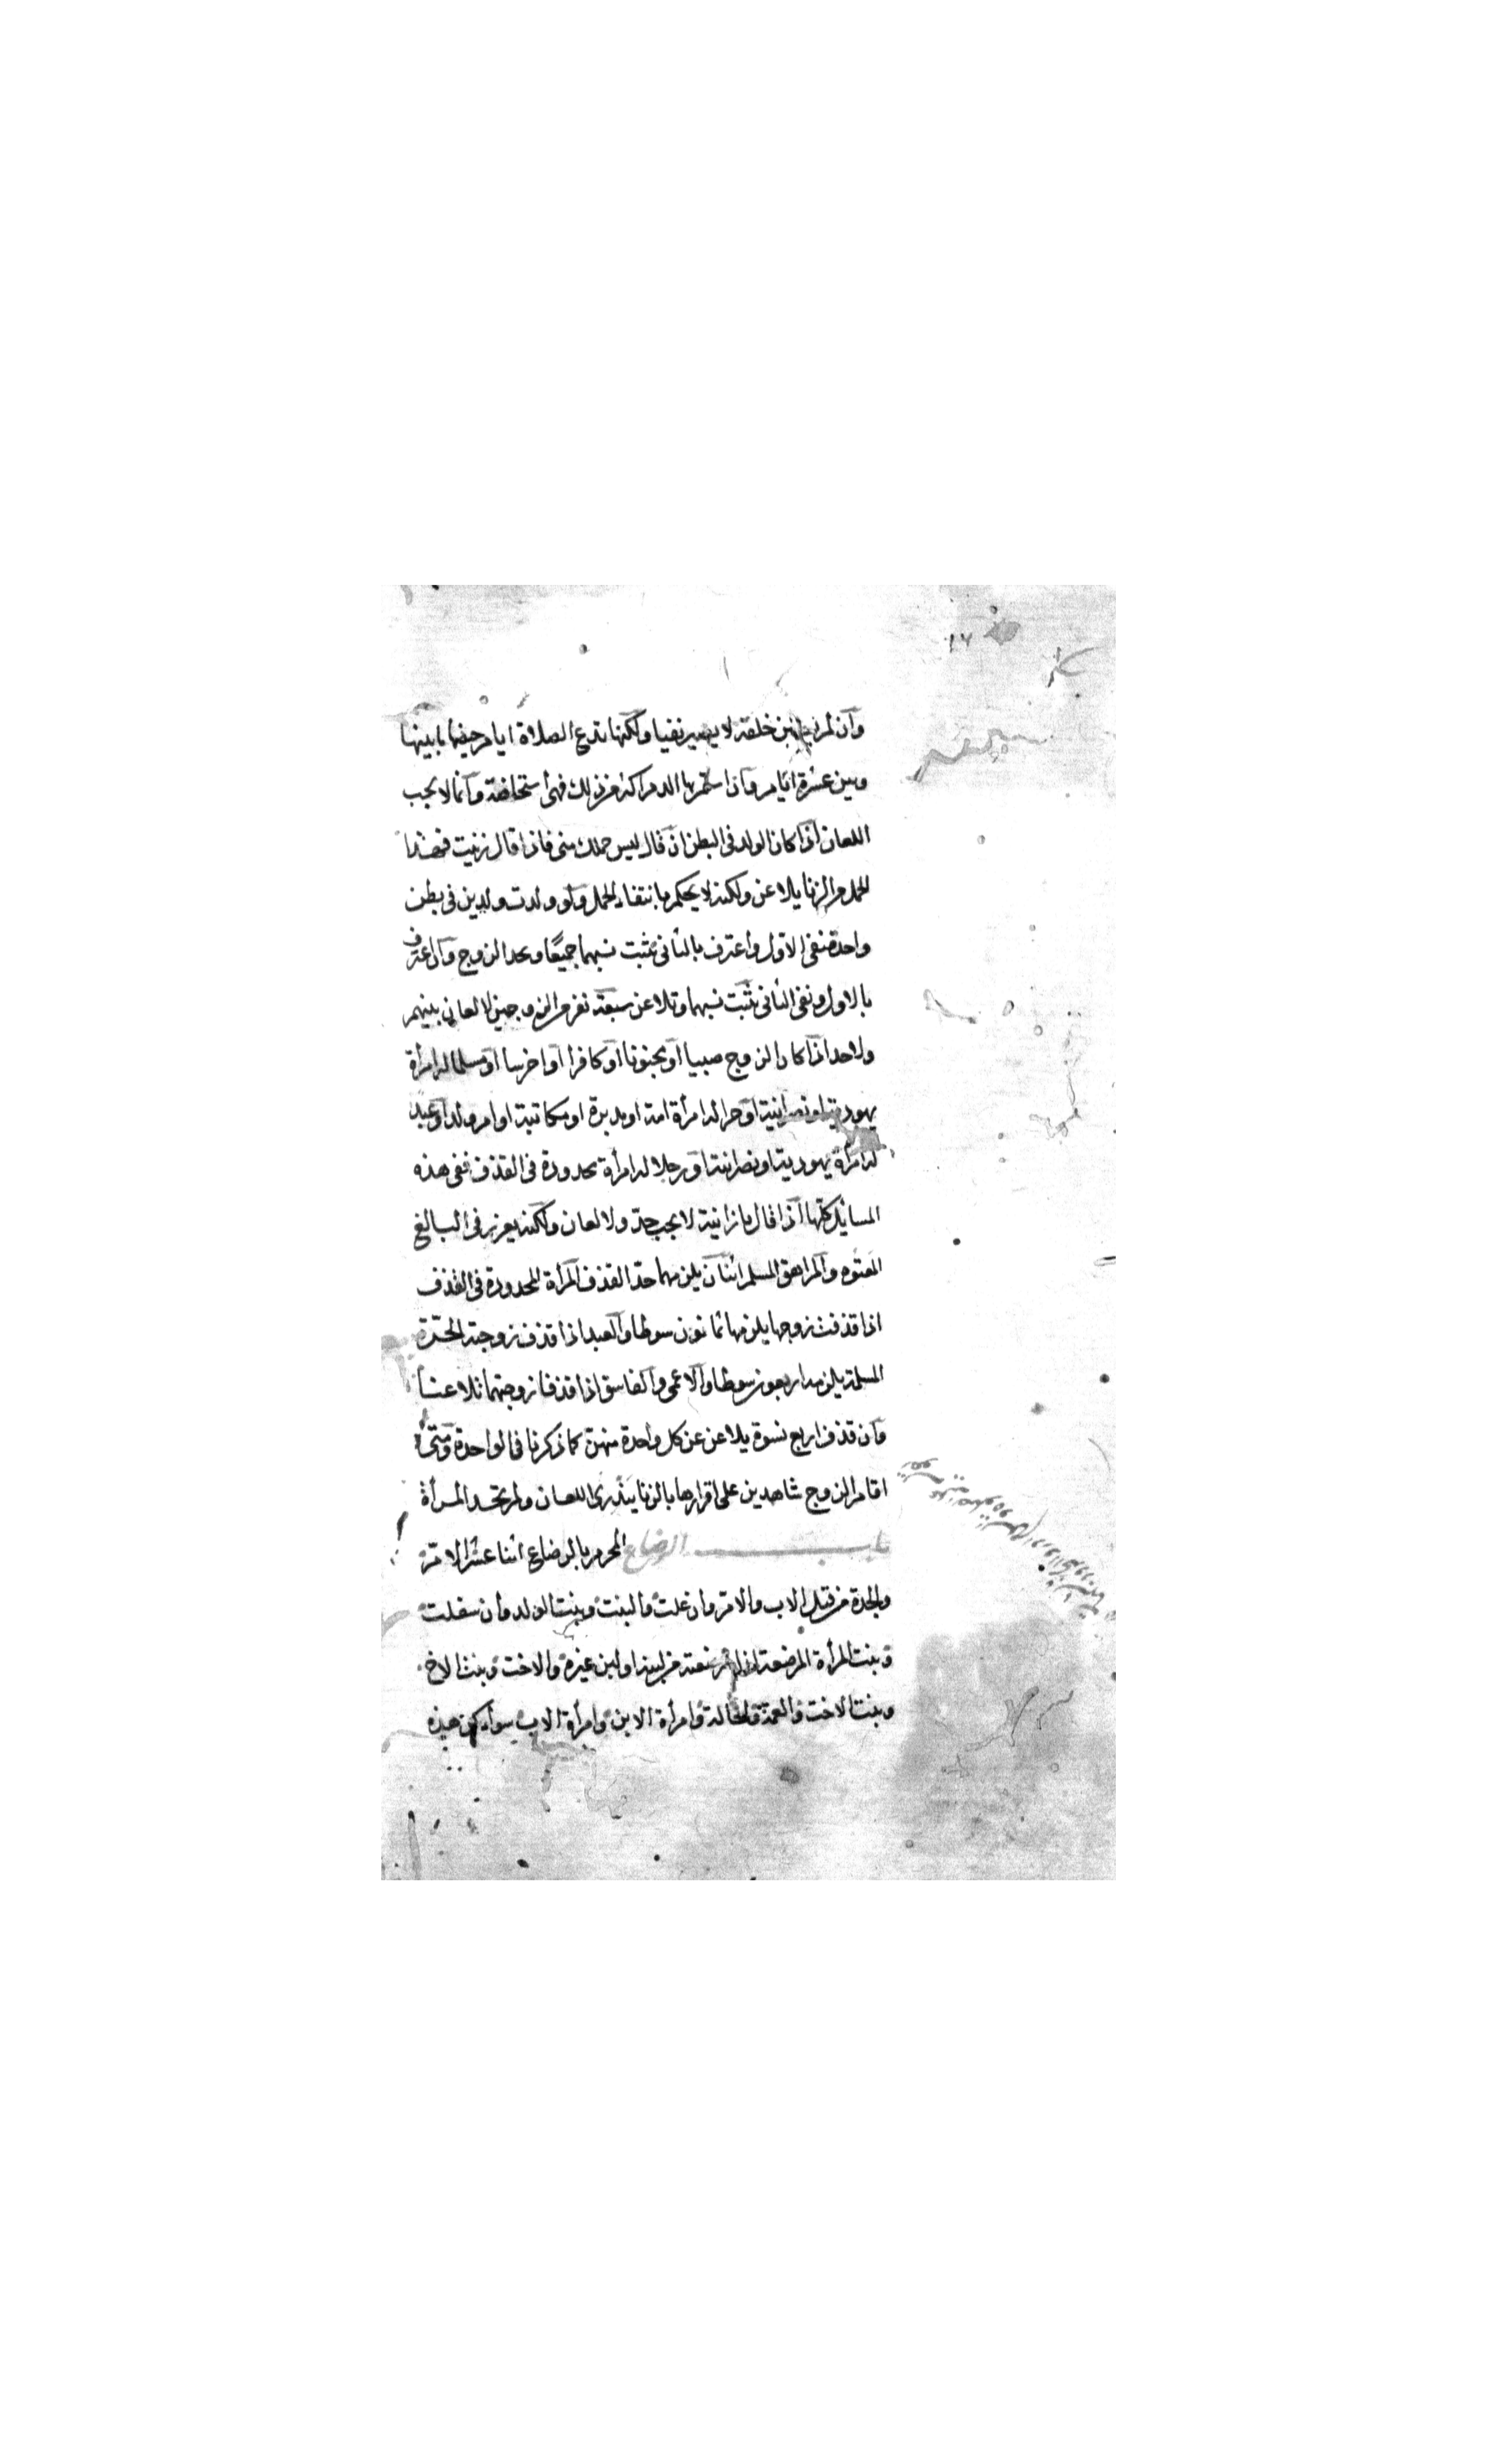 وان لم يستبن خلقه لا يصير نفسا ولكنها تدع الصلاة ايام حيضها ما بينها
وبين عشرة ايام وان استمر بها الدم اكثر من ذلك فهى استحاضة وانما لا يجب
اللعان اذا كان الولد فى البطن ان قال ليس حملك منى فاذا قال زنيت فهذا
الحمل من الزنا يلاعن ولكنه لا يحكم بانتفاء الحمل ولو ولدت ولدين فى بطن
واحدة فنفى الاول واعترف بالثانى يثبت نسبهما جميعا ويحد الزوج وان اعترف
بالاول ونفى الثانى يثبت نسبهما وتلاعن سبعة نفر من الزوجين لا لعان بينهم
ولا حد اذا كان الزوج صبيا او مجنونا او كافرا او اخرسا او مسلما له امرأة
يهودية او نصرانية او حرا له امرأة امة او مدبرة او مكاتبة او ام ولد او عبد
له امرأة يهودية او نصرانية او رجلا له امرأة محدودة فى القذف ففى هذه
المسايل كلها اذا قال يا زانية لا يجب حد ولا لعان ولكنه يعزر فى البالغ
المعتوه والمراهق المسلم اثنان يلزمهما حد القذف المرأة المحدودة فى القذف
اذا قذفت زوجها يلزمها ثمانون سوطا والعبد اذا قذف زوجته الحرة
المسلمة يلزمه اربعون سوطا والاعمى والفاسق اذا قذفا زوجتهما تلاعنا
وان قذف اربع نسوة يلاعن عن كل واحدة منهن كما ذكرنا فى الواحدة ومتى
اقام الزوج شاهدين على اقرارها بالزنا يندرى اللعان ولم تحد المرأة
باب الرضاع المحرم بالرضاع اثنا عشر الام
والجدة من قبل الاب والام وان علت والبنت وبنت الولد وان سفلت
وبنت المرأة المرضعة اذا ارضعته من لبنه او لبن غيره والاخت وبنت الاخ
وبنت الاخت والعمة والخالة وامرأة الابن وامرأة الاب سواء كن هذه